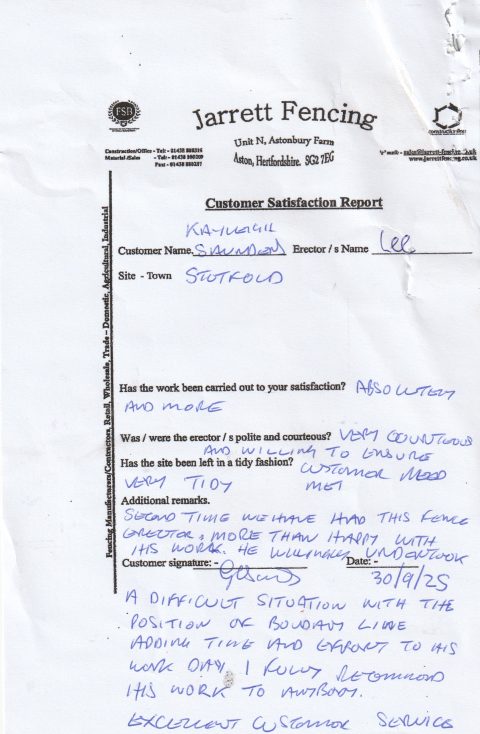 FSB
Jarrett Fencing
Unit N, Astonbury Farm
Aston, Hertfordshire. SG2 7EG
constructionline
Construction/Office - Tel: -
Material /Sales - Tel: -
Fax: -
www.jarrettfencing.co.uk
Fencing Manufacturers/Contractors, Retail, Wholesale, Trade – Domestic, Agricultural, Industrial
Customer Satisfaction Report
KAYLEIGH
Customer Name. SAUNDERS Erector / s Name Lee
Site - Town STOTFOLD
Has the work been carried out to your satisfaction? ABSOLUTELY
AND MORE
Was / were the erector / s polite and courteous? VERY COURTEOUS
AND WILLING TO ENSURE
Has the site been left in a tidy fashion? CUSTOMER NEED
VERY TIDY MET
Additional remarks.
SECOND TIME WE HAVE HAD THIS FENCE
ERECTOR, MORE THAN HAPPY WITH
HIS WORK. HE WILLINGLY UNDERTOOK
Customer signature: - Date: -
30/9/25
A DIFFICULT SITUATION WITH THE
POSITION OF BOUNDARY LINE
ADDING TIME AND EFFORT TO HIS
WORK DAY. I FULLY RECOMMEND
HIS WORK TO ANYBODY.
EXCELLENT CUSTOMER SERVICE